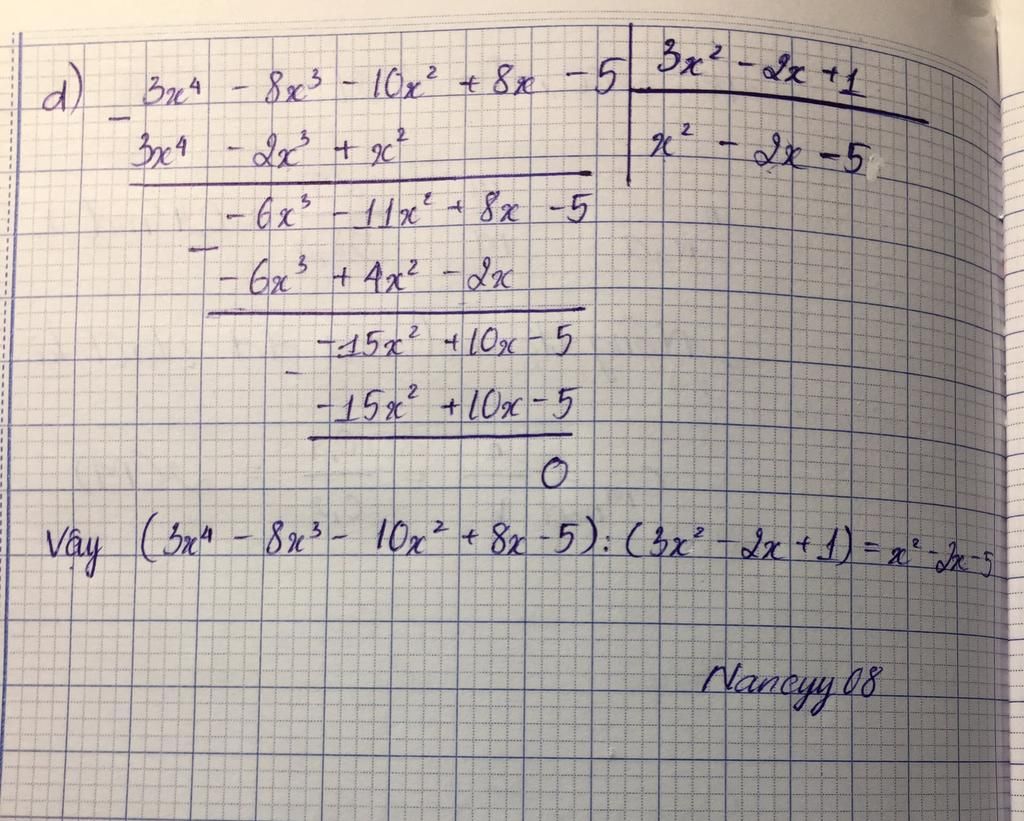 d) 3x⁴ - 8x³ - 10x² + 8x - 5 | 3x² - 2x + 1
-
3x⁴ - 2x³ + x² | x² - 2x - 5
- 6x³ - 11x² + 8x - 5
-
- 6x³ + 4x² - 2x
-15x² + 10x - 5
-
-15x² + 10x - 5
0
Vậy (3x⁴ - 8x³ - 10x² + 8x - 5) : (3x² - 2x + 1) = x² - 2x - 5
Nancyy 08